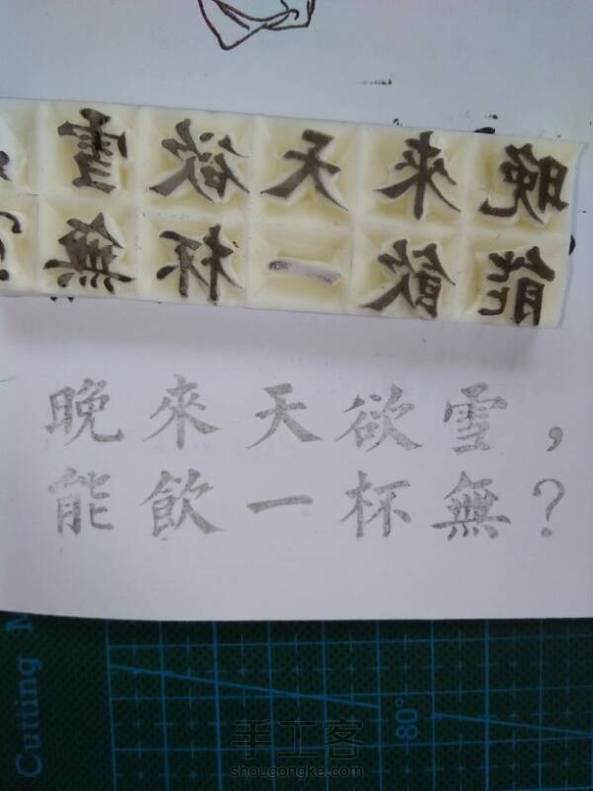 雪欲天來晚
無杯一飲能
晚來天欲雪，
能飲一杯無？
Cutting
80°
手工客
shougongke.com